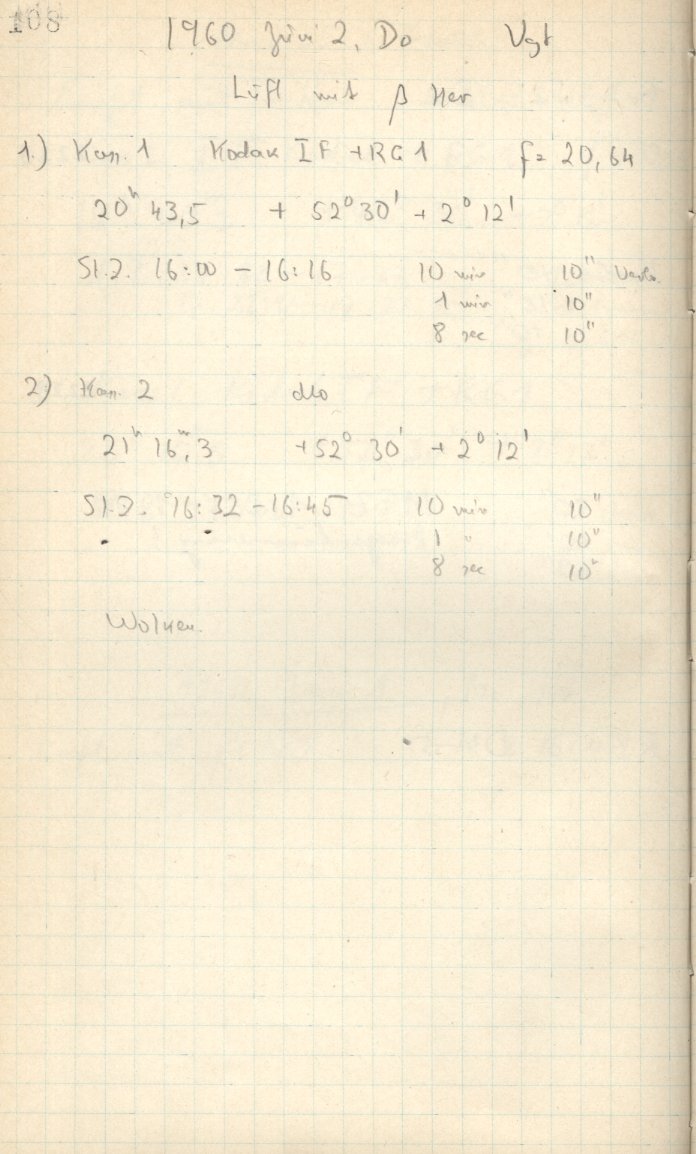 108
1960 Juni 2, Do Vgt
Luft mit β Her
1.) Kam. 1 Kodak IF + RG 1 f = 20,64
20ʰ 43,5 + 52° 30' + 2° 12'
St.Z. 16:00 – 16:16 10 min 10"
1 min 10"
8 sec 10"
2) Kam. 2 dto
21ʰ 16ᵐ,3 + 52° 30' + 2° 12'
St.Z. 16:32 – 16:45 10 min 10"
1 " 10"
8 sec 10"
Wolken